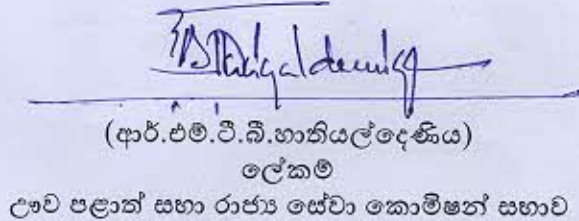 (ආර්.එම්.ටී.බී.හාතියල්දෙණිය)
ලේකම්
ඌව පළාත් සභා රාජ්‍ය සේවා කොමිෂන් සභාව